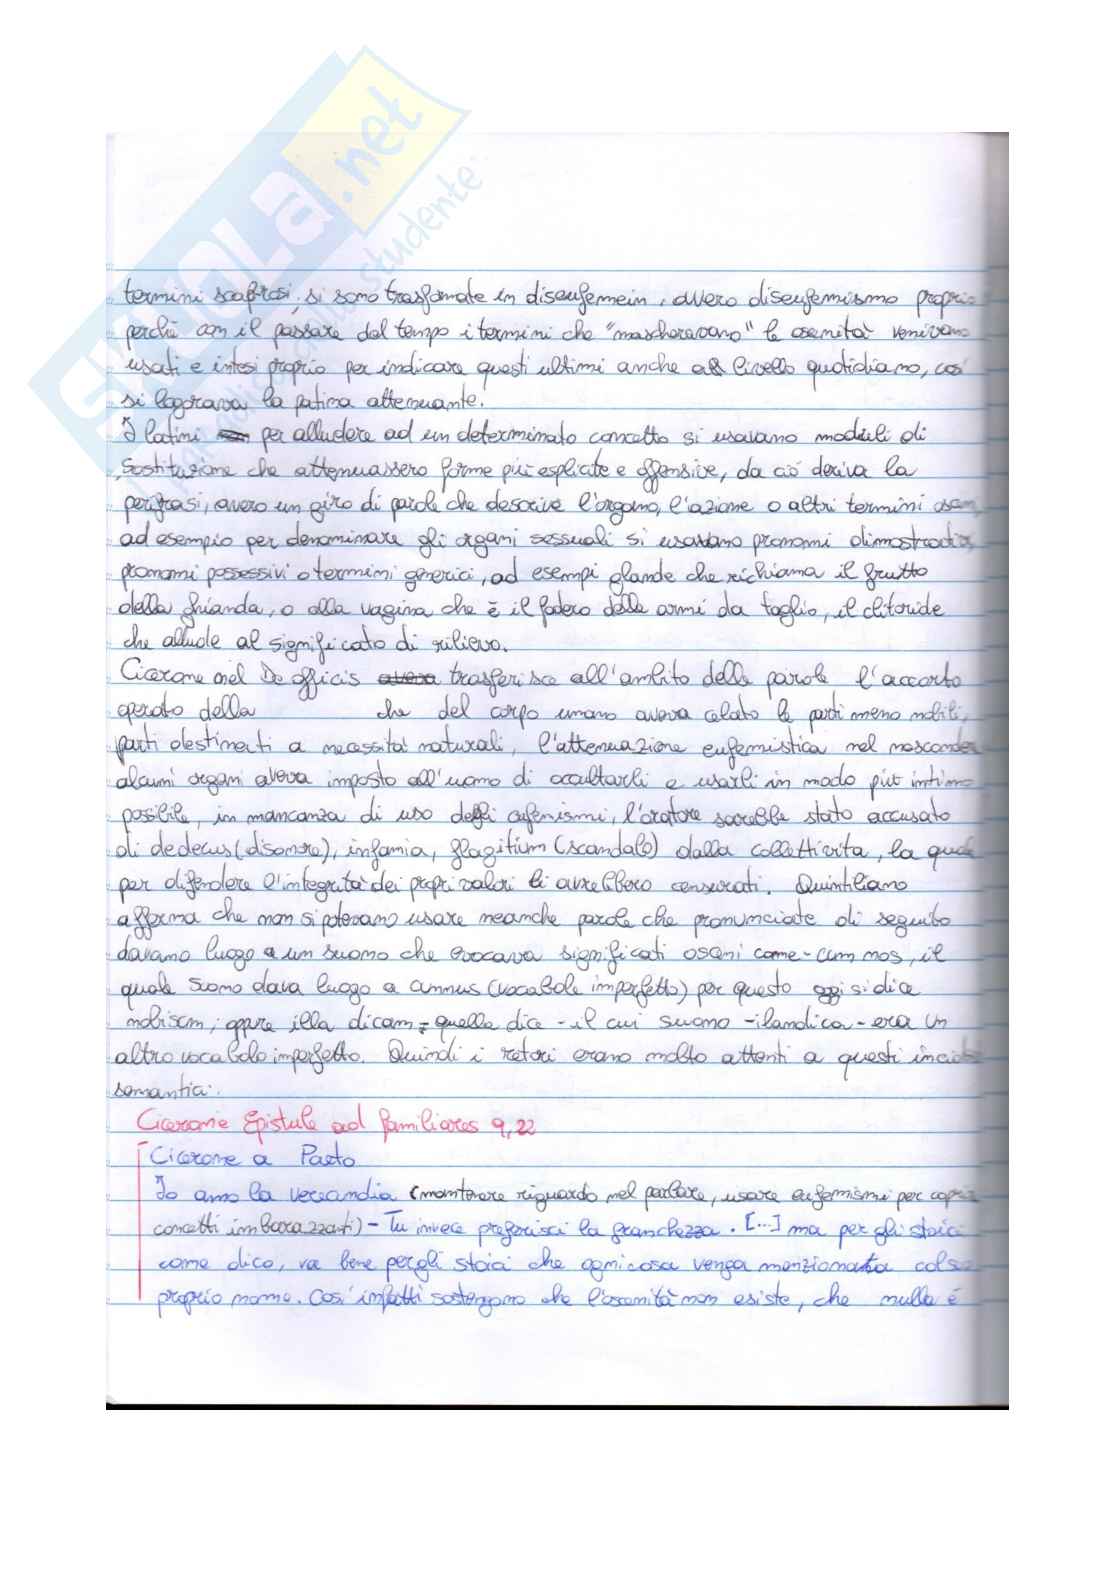 SKUOLA.net
studente
termini scabrosi, si sono trasfomate in diseufemein, ovvero diseufemismo proprio
perchè con il passare del tempo i termini che "mascheravano" le oscenità venivano
usati e intesi proprio per indicare questi ultimi anche a livello quotidiano, così
si logorava la patina attenuante.
I latini per alludere ad un determinato concetto si usavano moduli di
sostituzione che attenuassero forme più esplicite e offensive, da ciò deriva la
perifrasi, ovvero un giro di parole che descrive l'organo, l'azione o altri termini
ad esempio per denominare gli organi sessuali si usavano pronomi dimostrativi,
pronomi possessivi o termini generici, ad esempi glande che richiama il frutto
della ghianda, o alla vagina che è il fodero delle armi da taglio, il clitoride
che allude al significato di rilievo.
Cicerone nel De officis trasferisce all'ambito delle parole l'accorto
operato della che del corpo umano aveva celato le parti meno nobili,
parti destinenti a necessità naturali, l'attenuazione eufemistica nel nasconder
alcuni organi aveva imposto all'uomo di occultarli e usarli in modo più intimo
possibile, in mancanza di uso degli eufemismi, l'oratore sarebbe stato accusato
di dedecus (disonore), infamia, flagitium (scandalo) dalla collettivita, la quale
per difendere l'integrità dei propri valori li avrebbero censurati. Quintiliano
afferma che non si potevano usare neanche parole che pronunciate di seguito
davano luogo a un suono che evocava significati osceni come - cum nos, il
quale suono dava luogo a cunnus (vocabole imperfetto) per questo oggi si dice
nobiscm; oppure illa dicam = quella dice - il cui suono - ilandica - era un
altro vocabolo imperfetto. Quindi i retori erano molto attenti a questi
semantici.
Cicerone Epistule ad familiares 9,22
Cicerone a Paeto
Io amo la verecandia (mantenere riguardo nel parlare, usare eufemismi per coprire
concetti imbarazzanti) - Tu invece preferisci la franchezza. [...] ma per gli stoici
come dico, va bene per gli stoici che ogni cosa venga menzionata col suo
proprio nome. Così infatti sostengono che l'oscenità non esiste, che nulla è